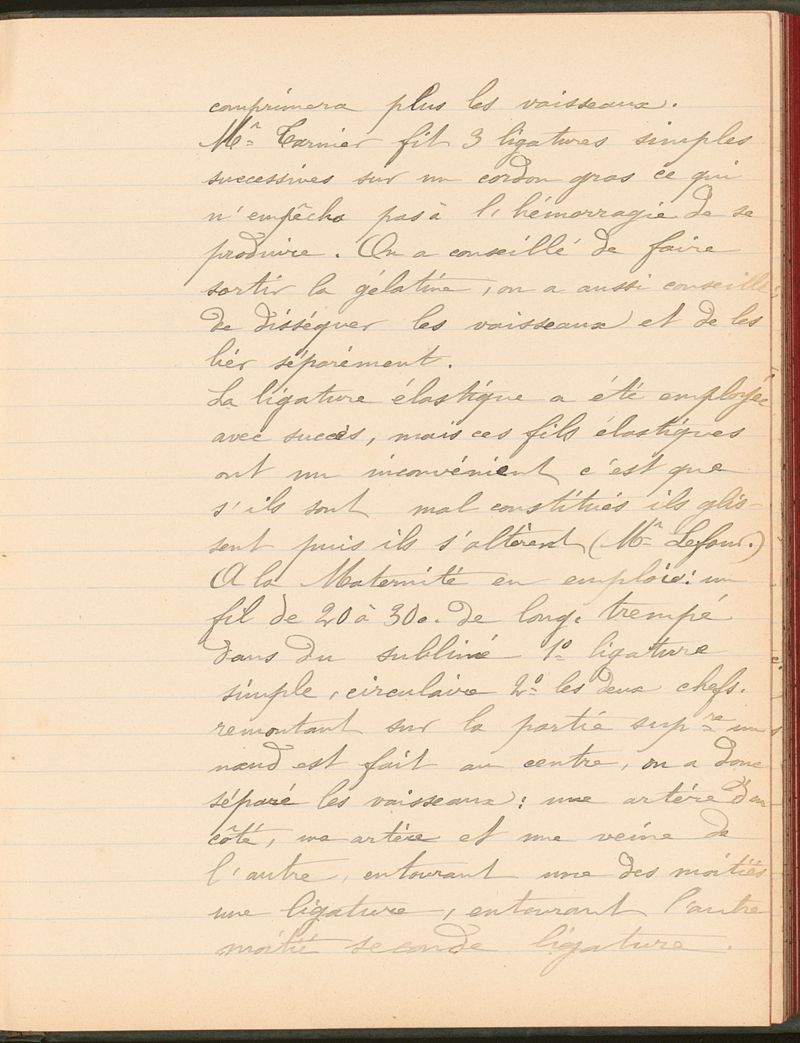 comprimera plus les vaisseaux.
Mr Tarnier fit 3 ligatures simples
successives sur un cordon gras ce qui
n'empêcha pas à l'hémorragie de se
produire. On a conseillé de faire
sortir la gélatine, on a aussi conseillé
de disséquer les vaisseaux et de les
lier séparément.
La ligature élastique a été employée
avec succès, mais ces fils élastiques
ont un inconvénient c'est que
s'ils sont mal constitués ils glis-
sent puis ils s'altèrent (Mr Lefour.)
A la Maternité en emploie: un
fil de 20 à 30c. de long. trempé
dans du sublimé 1º ligature
simple, circulaire 2º les deux chefs.
remontant sur la partie supre un
nœud est fait au centre, on a donc
séparé les vaisseaux: une artère d'un
côté, une artère et une veine de
l'autre, entourant une des moitiés
une ligature, entourant l'autre
moitié seconde ligature.